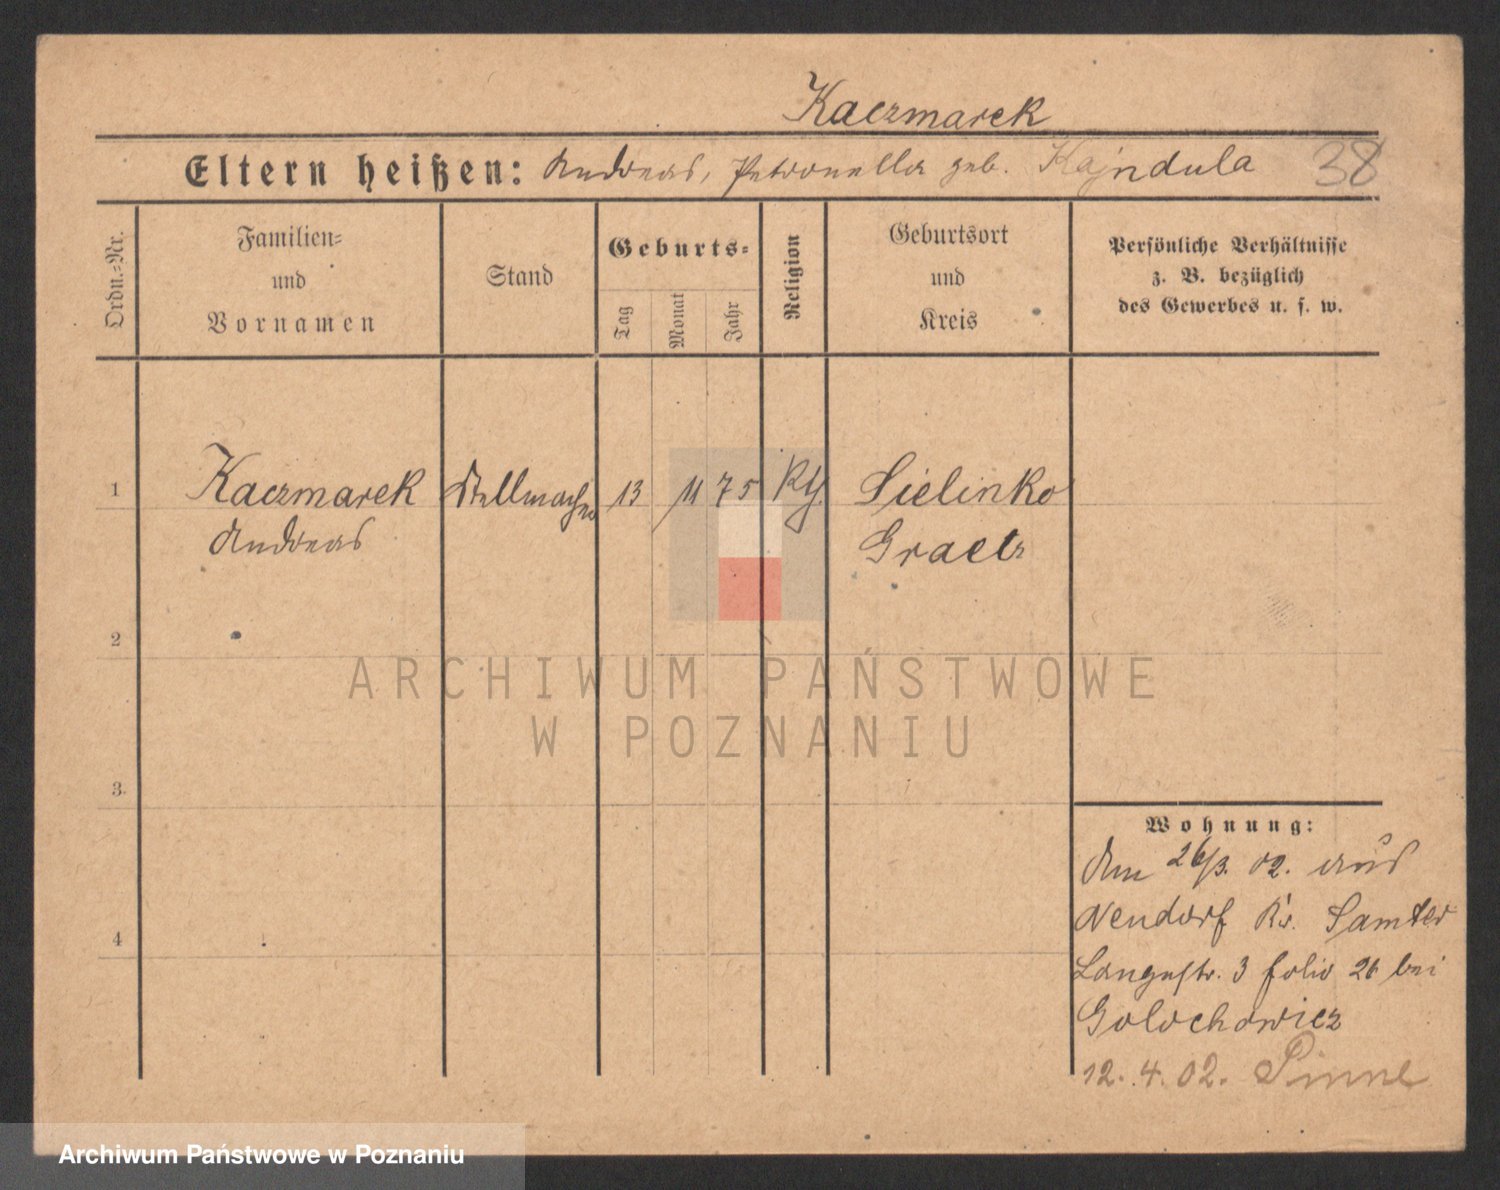 Kaczmarek
Eltern heißen: Andreas, Petronella geb. Kajndula 38
Ordn.=Nr.
Familien=
und
Vornamen
Stand
Geburts=
Tag
Monat
Jahr
Religion
Geburtsort
und
Kreis
Persönliche Verhältnisse
z. B. bezüglich
des Gewerbes u. s. w.
1 Kaczmarek Stellmacher 13 11 75 Kth. Sielinko
Andreas Graetz
2
3.
4
Wohnung:
Am 26/3. 02. aus
Neudorf Kr. Samter
Langestr. 3 folio 26 bei
Golochowicz
12. 4. 02. Pinne
ARCHIWUM PAŃSTWOWE
W POZNANIU
Archiwum Państwowe w Poznaniu